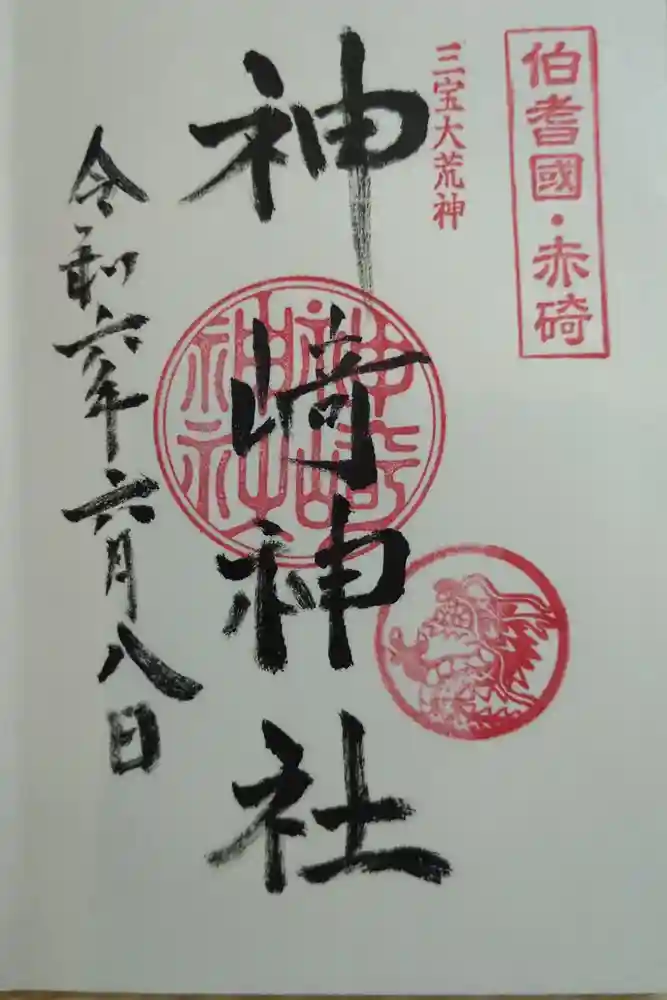 伯耆國・赤碕
三宝大荒神
神崎神社
神崎神社
令和六年六月八日